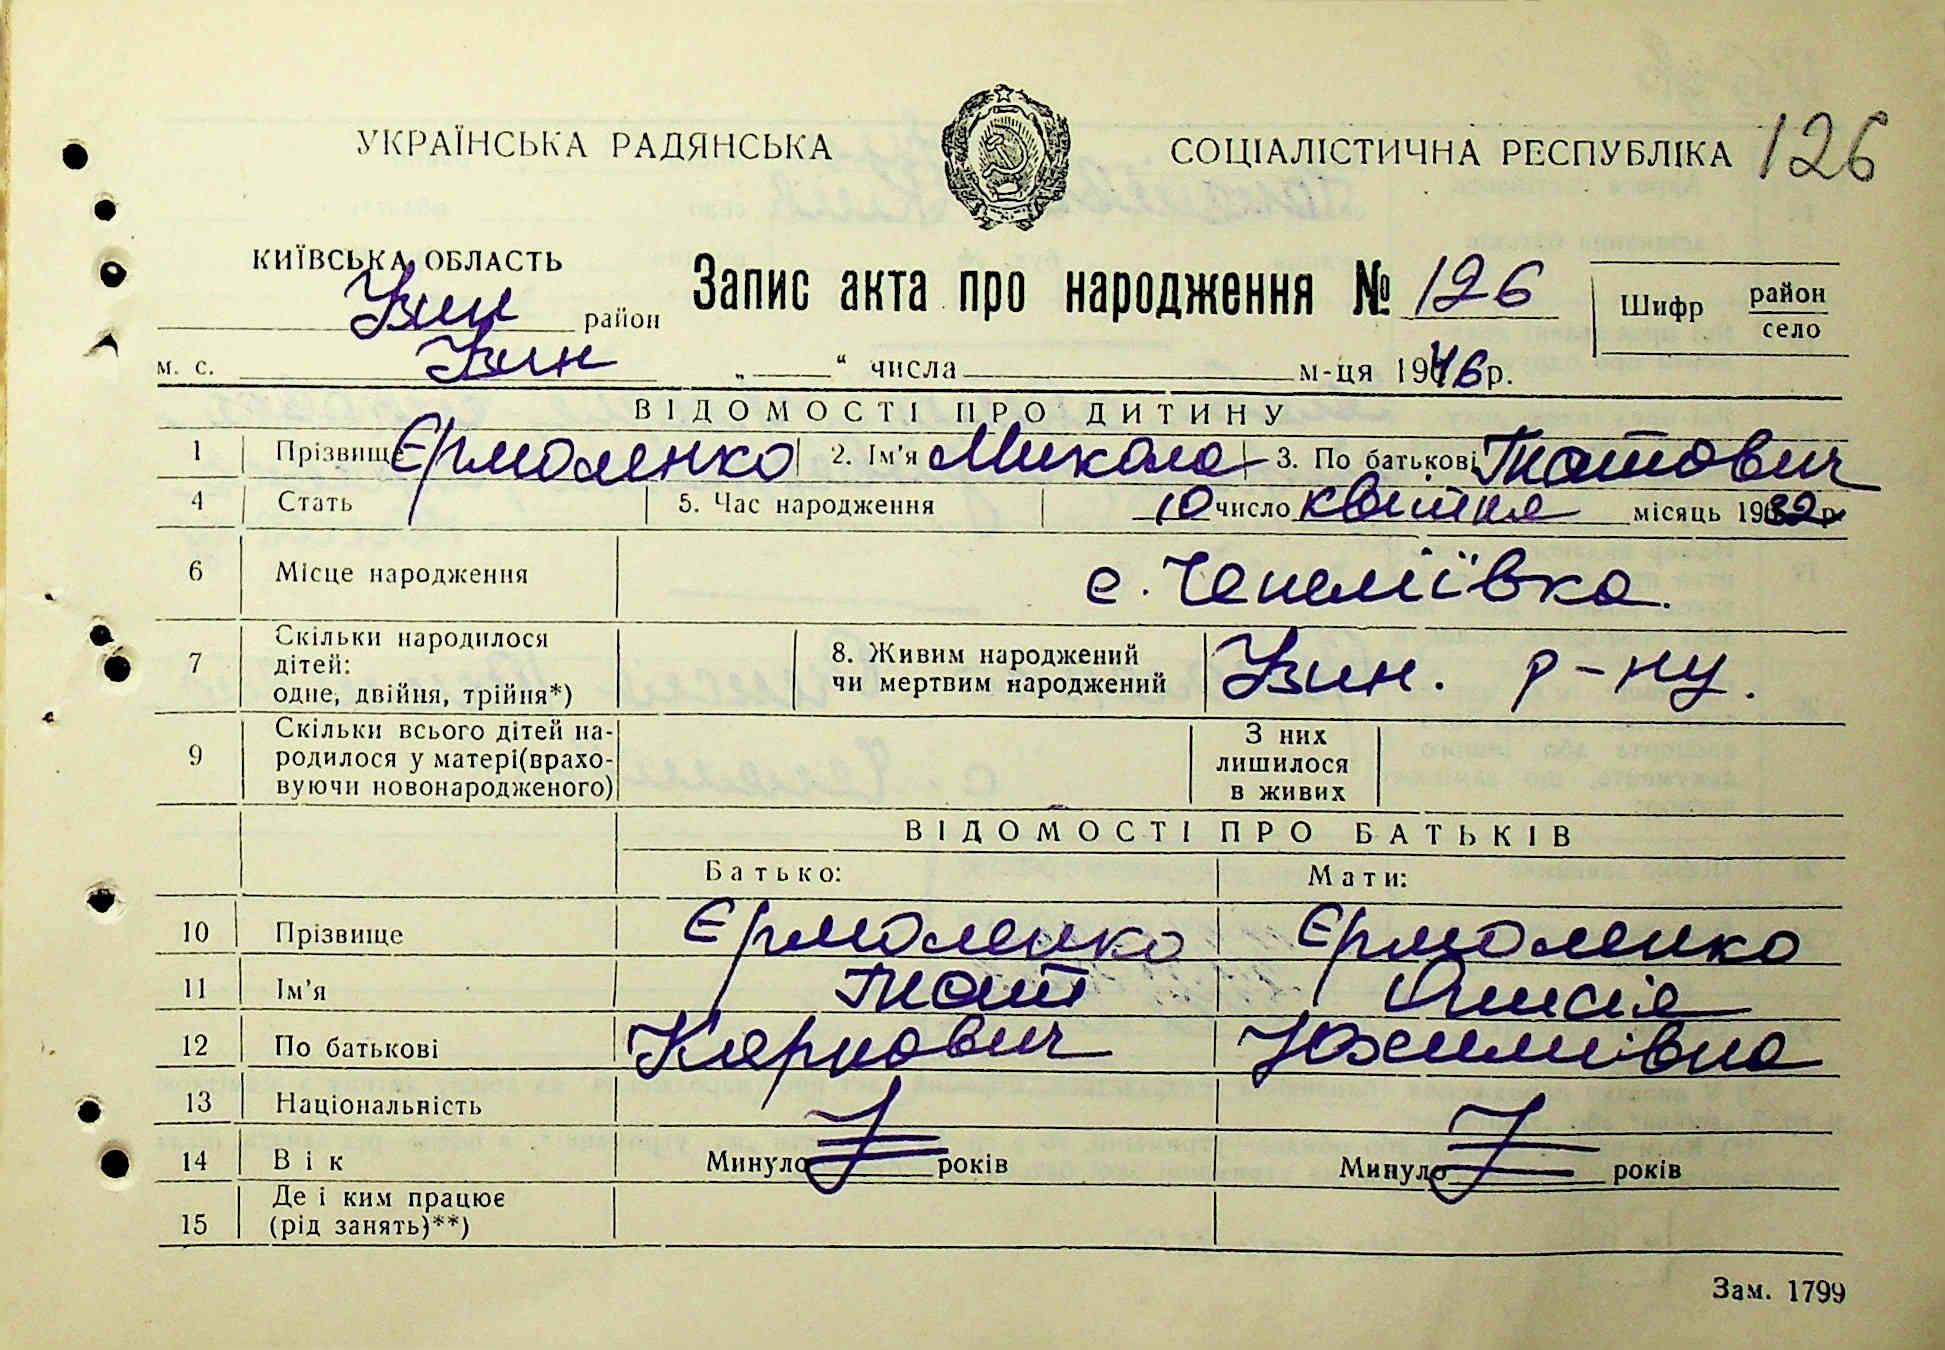 126
УКРАЇНСЬКА РАДЯНСЬКА СОЦІАЛІСТИЧНА РЕСПУБЛІКА
КИЇВСЬКА ОБЛАСТЬ
Запис акта про народження № 126
Шифр район село
Узин район
м. с. Узин „ “ числа м-ця 1946 р.
ВІДОМОСТІ ПРО ДИТИНУ
1 Прізвище Єрмоленко 2. Ім'я Микола 3. По батькові Гнатович
4 Стать 5. Час народження 10 число квітня місяць 1932 р.
6 Місце народження с. Чепеліївка.
7 Скільки народилося
дітей:
одне, двійня, трійня*)
8. Живим народжений
чи мертвим народжений
Узин. р-ну.
9 Скільки всього дітей на-
родилося у матері(врахо-
вуючи новонародженого)
З них
лишилося
в живих
ВІДОМОСТІ ПРО БАТЬКІВ
Батько: Мати:
10 Прізвище Єрмоленко Єрмоленко
11 Ім'я Гнат Онисія
12 По батькові Карпович Юхимівна
13 Національність
14 Вік Минуло років Минуло років
15 Де і ким працює
(рід занять)**)
Зам. 1799